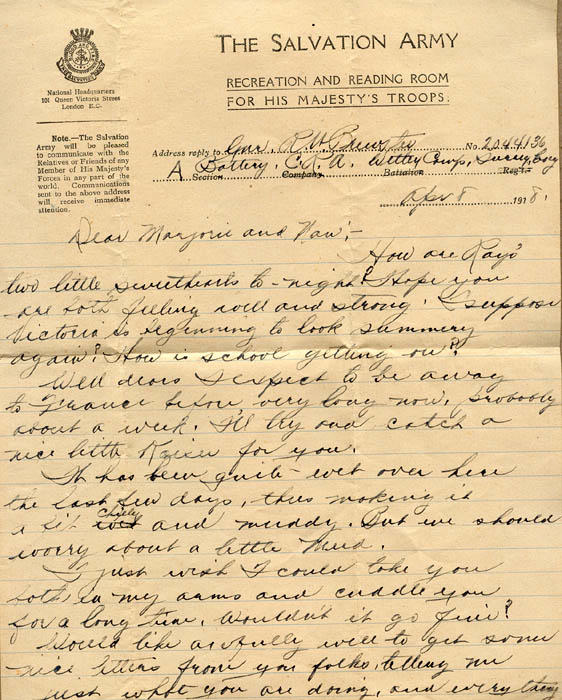 THE SALVATION ARMY
RECREATION AND READING ROOM
FOR HIS MAJESTY'S TROOPS.
National Headquarters
101 Queen Victoria Street
London E.C.
Note.—The Salvation
Army will be pleased
to communicate with the
Relatives or Friends of any
Member of His Majesty's
Forces in any part of the
world. Communications
sent to the above address
will receive immediate
attention.
Address reply to Gnr. R.W. Brewster No. 2044136
A Battery, C.R.A. Witley Camp, Surrey, Eng
Section Company Battalion Reg't.
Apr 8 1918.
Dear Marjorie and Nan:-
How are Ray's
two little sweethearts to-night? Hope you
are both feeling well and strong. I suppose
Victoria is beginning to look summery
again? How is school getting on?
Well dears I expect to be away
to France before very long now, probobly
about a week. I'll try and catch a
nice little Kaiser for you.
It has been quite wet over here
the last few days, thus making it
a bit wet Chilly and muddy. But we should
worry about a little Mud.
I just wish I could take you
both in my arms and cuddle you
for a long time. Wouldn't it go fine?
Would like awfully well to get some
nice letters from you folks, telling me
just what you are doing, and everything